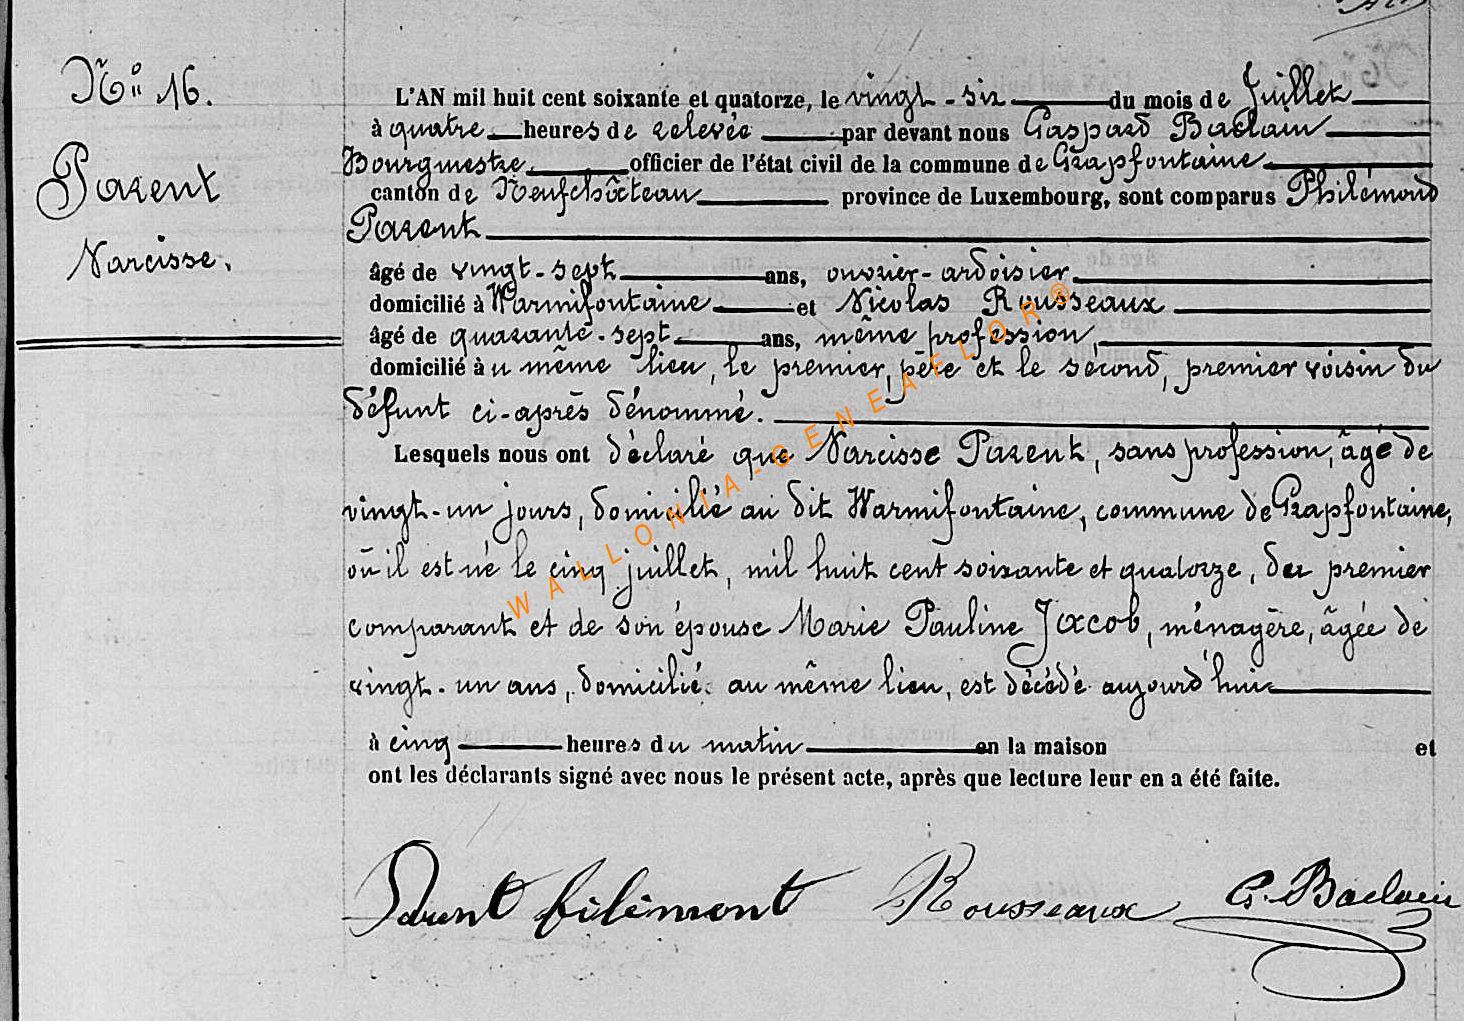 N° 16.
Parent
Narcisse.
L'AN mil huit cent soixante et quatorze, le vingt-six du mois de Juillet
à quatre heures de relevée par devant nous Gaspard Baclain
Bourgmestre officier de l'état civil de la commune de Grapfontaine
canton de Neufchâteau province de Luxembourg, sont comparus Philémond
Parent
âgé de vingt-sept ans, ouvrier-ardoisier
domicilié à Warmifontaine et Nicolas Rousseaux
âgé de quarante-sept ans, même profession,
domicilié au même lieu, le premier, père et le second, premier voisin du
défunt ci-après dénommé.
Lesquels nous ont déclaré que Narcisse Parent, sans profession, âgé de
vingt-un jours, domicilié au dit Warmifontaine, commune de Grapfontaine,
où il est né le cinq juillet, mil huit cent soixante et quatorze, du premier
comparant et de son épouse Marie Pauline Jacob, ménagère, âgée de
vingt-un ans, domicilié au même lieu, est décédé aujourd'hui
à cinq heures du matin en la maison et
ont les déclarants signé avec nous le présent acte, après que lecture leur en a été faite.
Parent filimont Rousseaux G. Baclain
WALLONIA-GENEAFLOR®